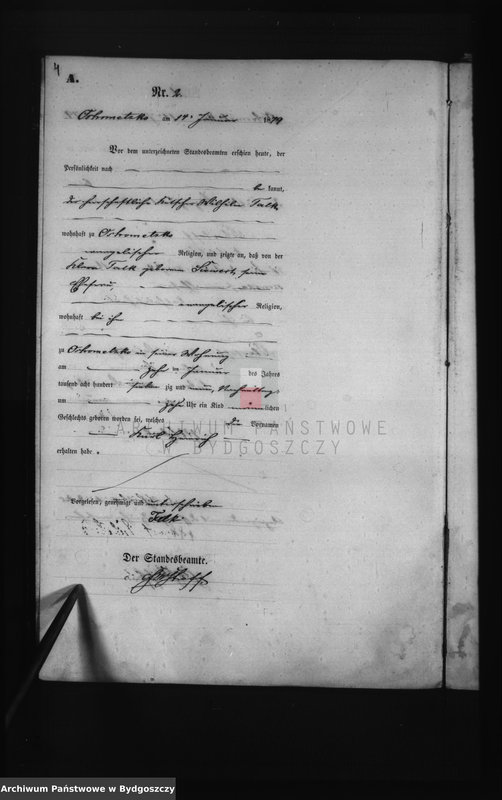 4
A.
Nr. 2
Ostrometzko am 14. Januar 1879
Vor dem unterzeichneten Standesbeamten erschien heute, der
Persönlichkeit nach
be kannt,
der herrschaftliche Kutscher Wilhelm Falk
wohnhaft zu Ostrometzko
evangelischer Religion, und zeigte an, daß von der
Falk geborenen seiner
Ehefrau,
evangelischer Religion,
wohnhaft bei ihm
zu Ostrometzko in seiner Wohnung
am zehn ten Januar des Jahres
tausend acht hundert sieben zig und neun, Nachmittags
um zehn Uhr ein Kind männlichen
Geschlechts geboren worden sei, welches die Vornamen
Heinrich
erhalten habe.
Vorgelesen, genehmigt und unterschrieben
Falk
Der Standesbeamte.
ARCHIWUM PAŃSTWOWE
W BYDGOSZCZY
Archiwum Państwowe w Bydgoszczy